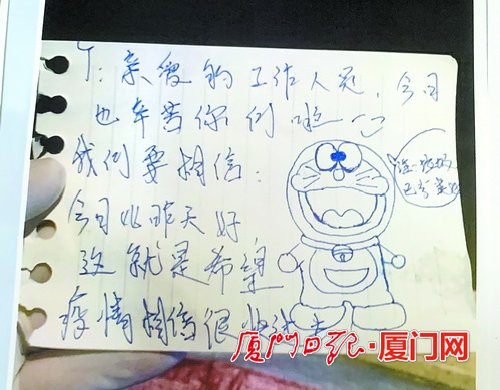 亲爱的工作人员，今日
也辛苦你们啦～
我们要相信：
今日比昨天好
这就是希望
疫情相信很快过去
厦门日报·厦门网